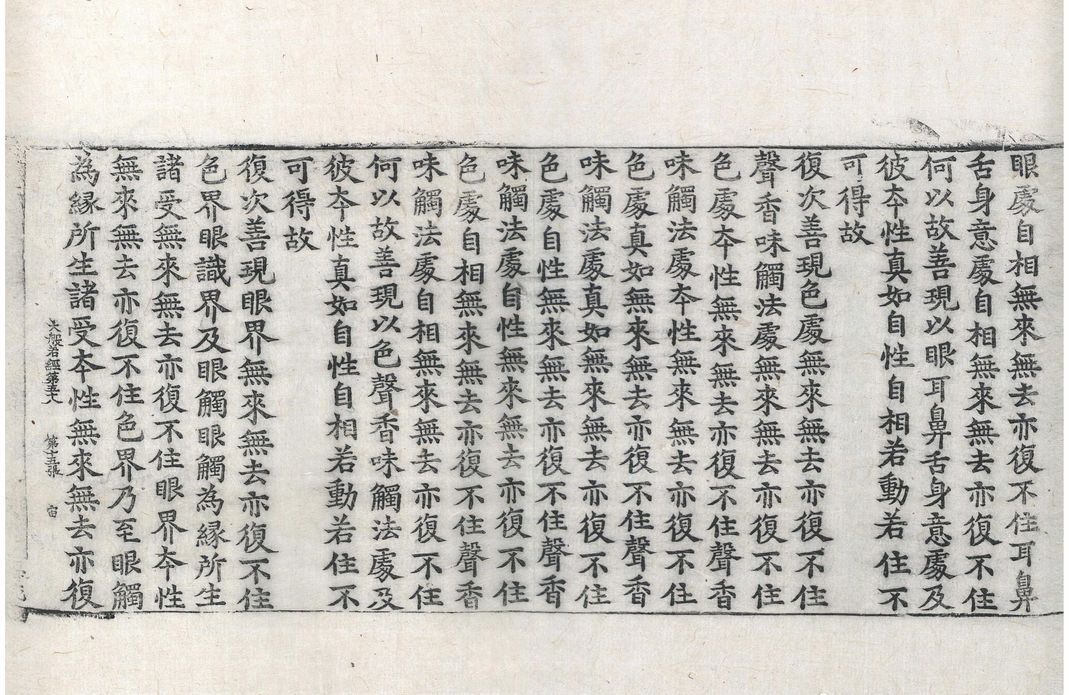 眼處自相無來無去亦復不住耳鼻
舌身意處自相無來無去亦復不住
何以故善現以眼耳鼻舌身意處及
彼夲性真如自性自相若動若住不
可得故
復次善現色處無來無去亦復不住
聲香味觸法處無來無去亦復不住
色處夲性無來無去亦復不住聲香
味觸法處夲性無來無去亦復不住
色處真如無來無去亦復不住聲香
味觸法處真如無來無去亦復不住
色處自性無來無去亦復不住聲香
味觸法處自性無來無去亦復不住
色處自相無來無去亦復不住聲香
味觸法處自相無來無去亦復不住
何以故善現以色聲香味觸法處及
彼夲性真如自性自相若動若住不
可得故
復次善現眼界無來無去亦復不住
色界眼識界及眼觸眼觸為緣所生
諸受無來無去亦復不住眼界夲性
無來無去亦復不住色界乃至眼觸
為緣所生諸受夲性無來無去亦復
大般若經第五十六 第十五張 宙